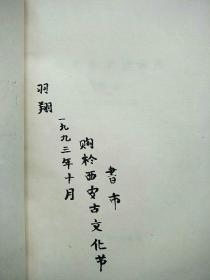 羽翔
一九九三年十月
购於西安古文化节
書市